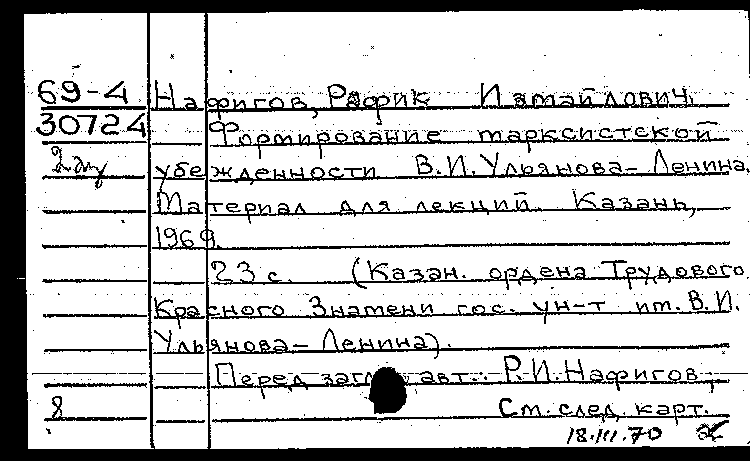 69-4 Нафигов, Рафик Измайлович.
30724 Формирование марксистской
убежденности В.И.Ульянова-Ленина.
Материал для лекций. Казань,
1969.
23 с. (Казан. ордена Трудового
Красного Знамени гос. ун-т им. В.И.
Ульянова-Ленина).
Перед загл. авт.: Р.И.Нафигов,
8 См. след. карт.
18.III.70